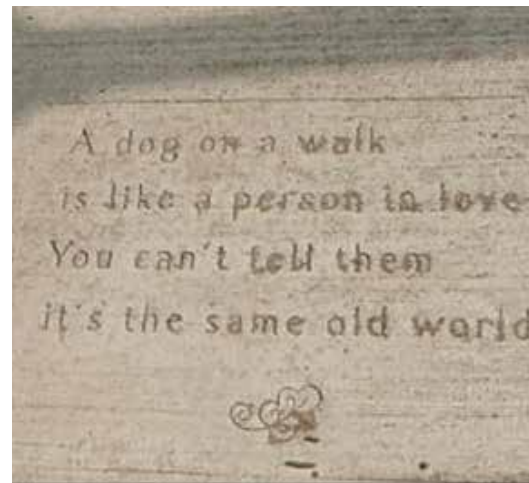 A dog on a walk
is like a person in love
You can't tell them
it's the same old world